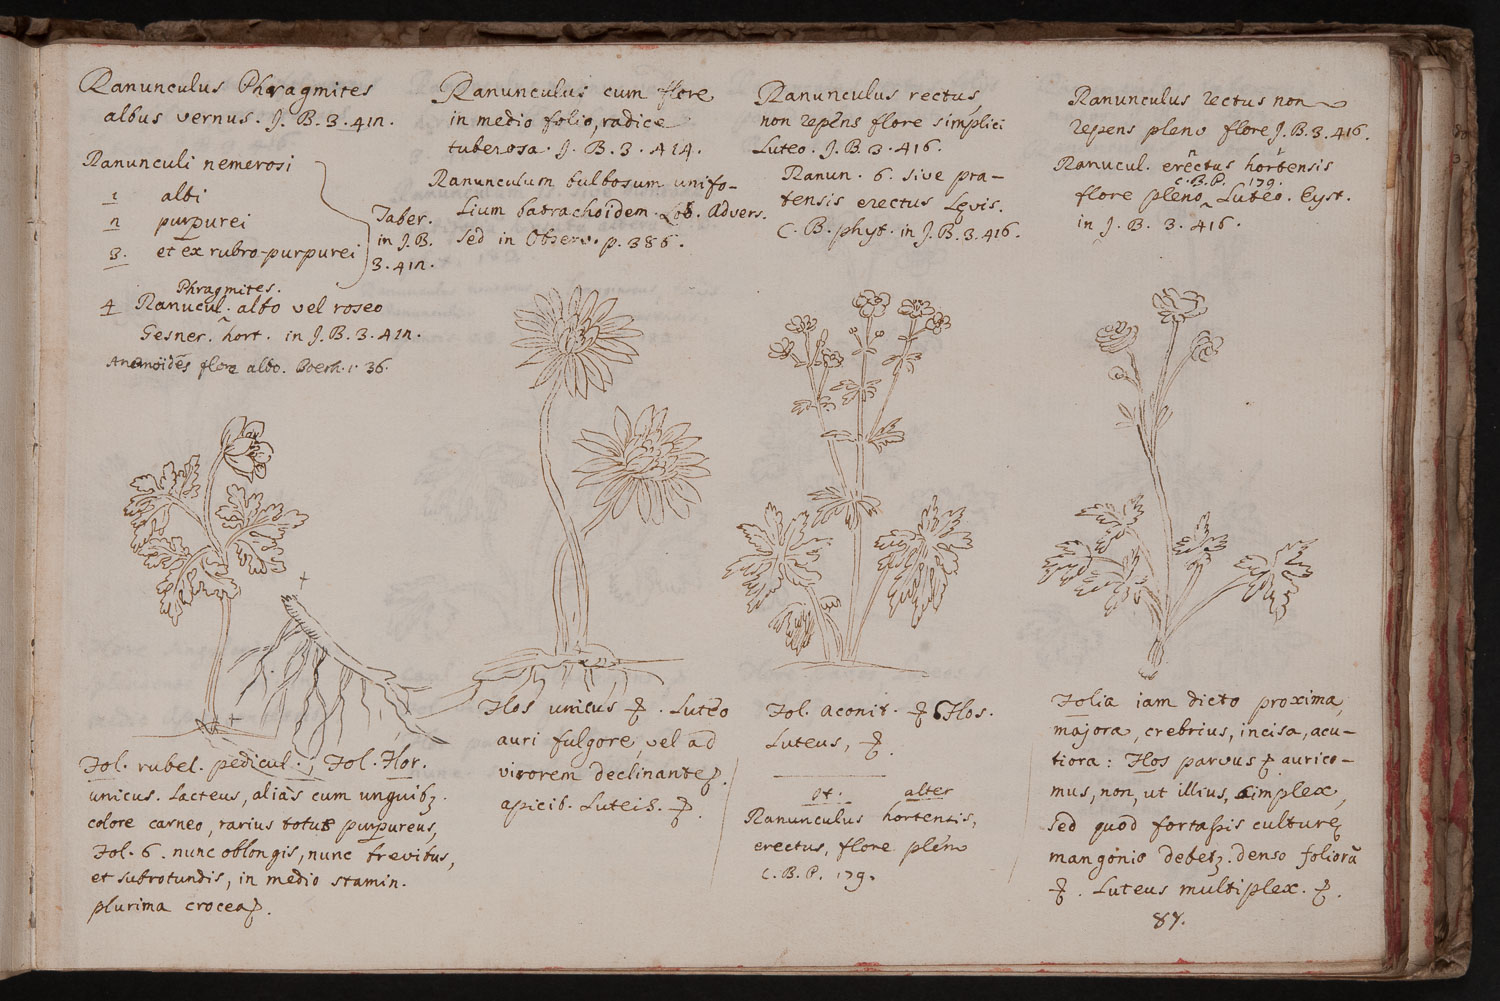 Ranunculus Phragmites
albus vernus. J. B. 3. 412.
Ranunculi nemorosi
1 albi
2 purpurei
3. et ex rubro-purpurei
Taber.
in J. B.
3. 412.
Phragmites.
4 Ranucul. albo vel roseo
Gesner. hort. in J. B. 3. 412.
flore albo. Boerh. 1. 36.
Fol. rubel. pedicul. ; Fol. Flor.
unicus. Lacteus, aliàs cum unguib₃.
colore carneo, rarius totus purpureus,
Fol. 6. nunc oblongis, nunc brevibus,
et subrotundis, in medio stamin.
plurima crocea.
Ranunculus cum flore
in medio folio, radice
tuberosa. J. B. 3. 414.
Ranunculum bulbosum unifo-
lium batrachoidem. Lob. Advers.
sed in Observ. p. 386.
Flos unicus. Luteo
auri fulgore, vel ad
virorem declinante.
apicib. Luteis.
Ranunculus rectus
non repēns flore simplici
Luteo. J. B. 3. 416.
Ranun. 6. sive pra-
tensis erectus Levis.
C. B. phyt. in J. B. 3. 416.
Fol. Aconit. Flos.
Luteus,
alter
Ranunculus hortensis,
erectus, flore pleno
C. B. P. 179.
Ranunculus rectus non
repens pleno flore J. B. 3. 416.
Ranucul. erectus hortensis
C. B. P. 179.
flore pleno Luteo. Eyst.
in J. B. 3. 416.
Folia iam dicto proxima,
majora, crebrius, incisa, acu-
tiora: Flos parvus aurico-
mus, non, ut illius, simplex,
sed quod fortassis culturę
mangonio debet₃. denso foliorū
. Luteus multiplex.
87.